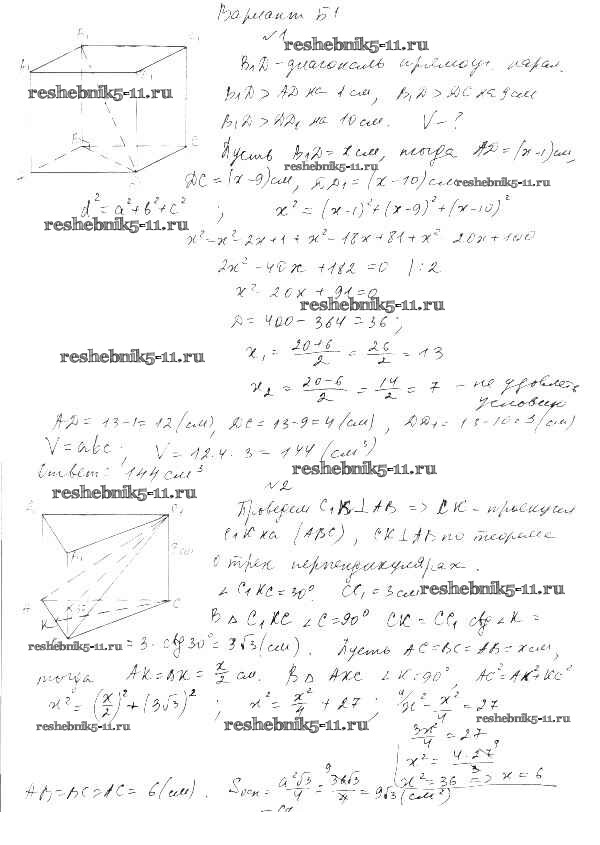 Вариант Б1
№1
reshebnik5-11.ru
B₁D - диагональ прямоуг. парал.
reshebnik5-11.ru
B₁D > AD на 1 см, B₁D > DC на 9 см
B₁D > DD₁ на 10 см. V - ?
Пусть B₁D = x см, тогда AD = (x-1) см,
reshebnik5-11.ru
DC = (x-9) см, DD₁ = (x-10) см
reshebnik5-11.ru
d² = a² + b² + c² ; x² = (x-1)² + (x-9)² + (x-10)²
reshebnik5-11.ru
x² = x² - 2x + 1 + x² - 18x + 81 + x² 20x + 100
2x² - 40x + 182 = 0 |:2
x² - 20x + 91 = 0
reshebnik5-11.ru
D = 400 - 364 = 36;
reshebnik5-11.ru
x₁ = (20+6)/2 = 26/2 = 13
x₂ = (20-6)/2 = 14/2 = 7 - не удовлет.
условию
AD = 13-1 = 12 (см), DC = 13-9 = 4 (см), DD₁ = 13-10 = 3 (см)
V = abc; V = 12·4·3 = 144 (см³)
Ответ: 144 см³
reshebnik5-11.ru
№2
reshebnik5-11.ru
Проведем C₁K ⊥ AB => CK - проекция
C₁K на (ABC), CK ⊥ AB по теореме
о трех перпендикулярах.
∠C₁KC = 30° CC₁ = 3 см
reshebnik5-11.ru
В △C₁KC ∠C = 90° CK = CC₁ ctg∠K =
reshebnik5-11.ru
= 3·ctg30° = 3√3 (см). Пусть AC = BC = AB = x см,
тогда AK = BK = x/2 см. В △AKC ∠K = 90°, AC² = AK² + KC²
x² = (x/2)² + (3√3)² ; x² = x²/4 + 27 ; x² - x²/4 = 27
reshebnik5-11.ru
reshebnik5-11.ru
reshebnik5-11.ru
3x²/4 = 27
x² = 4·27/3
x² = 36 => x = 6
AB = BC = AC = 6 (см). Sосн = a²√3/4 = 36√3/4 = 9√3 (см²)